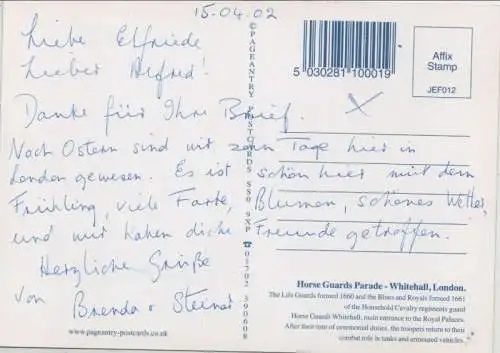 15-04.02
Liebe Elfriede
Lieber Alfred!
Danke für Ihre Brief.
Nach Ostern sind wir zehn Tage hier in
London gewesen. Es ist schön hier mit dem
Frühling, viele Farbe, Blumen, schönes Wetter,
und wir haben Freunde getroffen.
Herzliche Grüße
von Brenda + Steinar
5 030281 100019
Affix
Stamp
JEF012
© PAGEANTRY POSTCARDS SS0 9XP ☎ 01702 390608
Horse Guards Parade - Whitehall, London.
The Life Guards formed 1660 and the Blues and Royals formed 1661
of the Household Cavalry regiments guard
Horse Guards Whitehall, main entrance to the Royal Palaces.
After their tour of ceremonial duties, the troopers return to their
combat role in tanks and armoured vehicles.
www.pageantry-postcards.co.uk